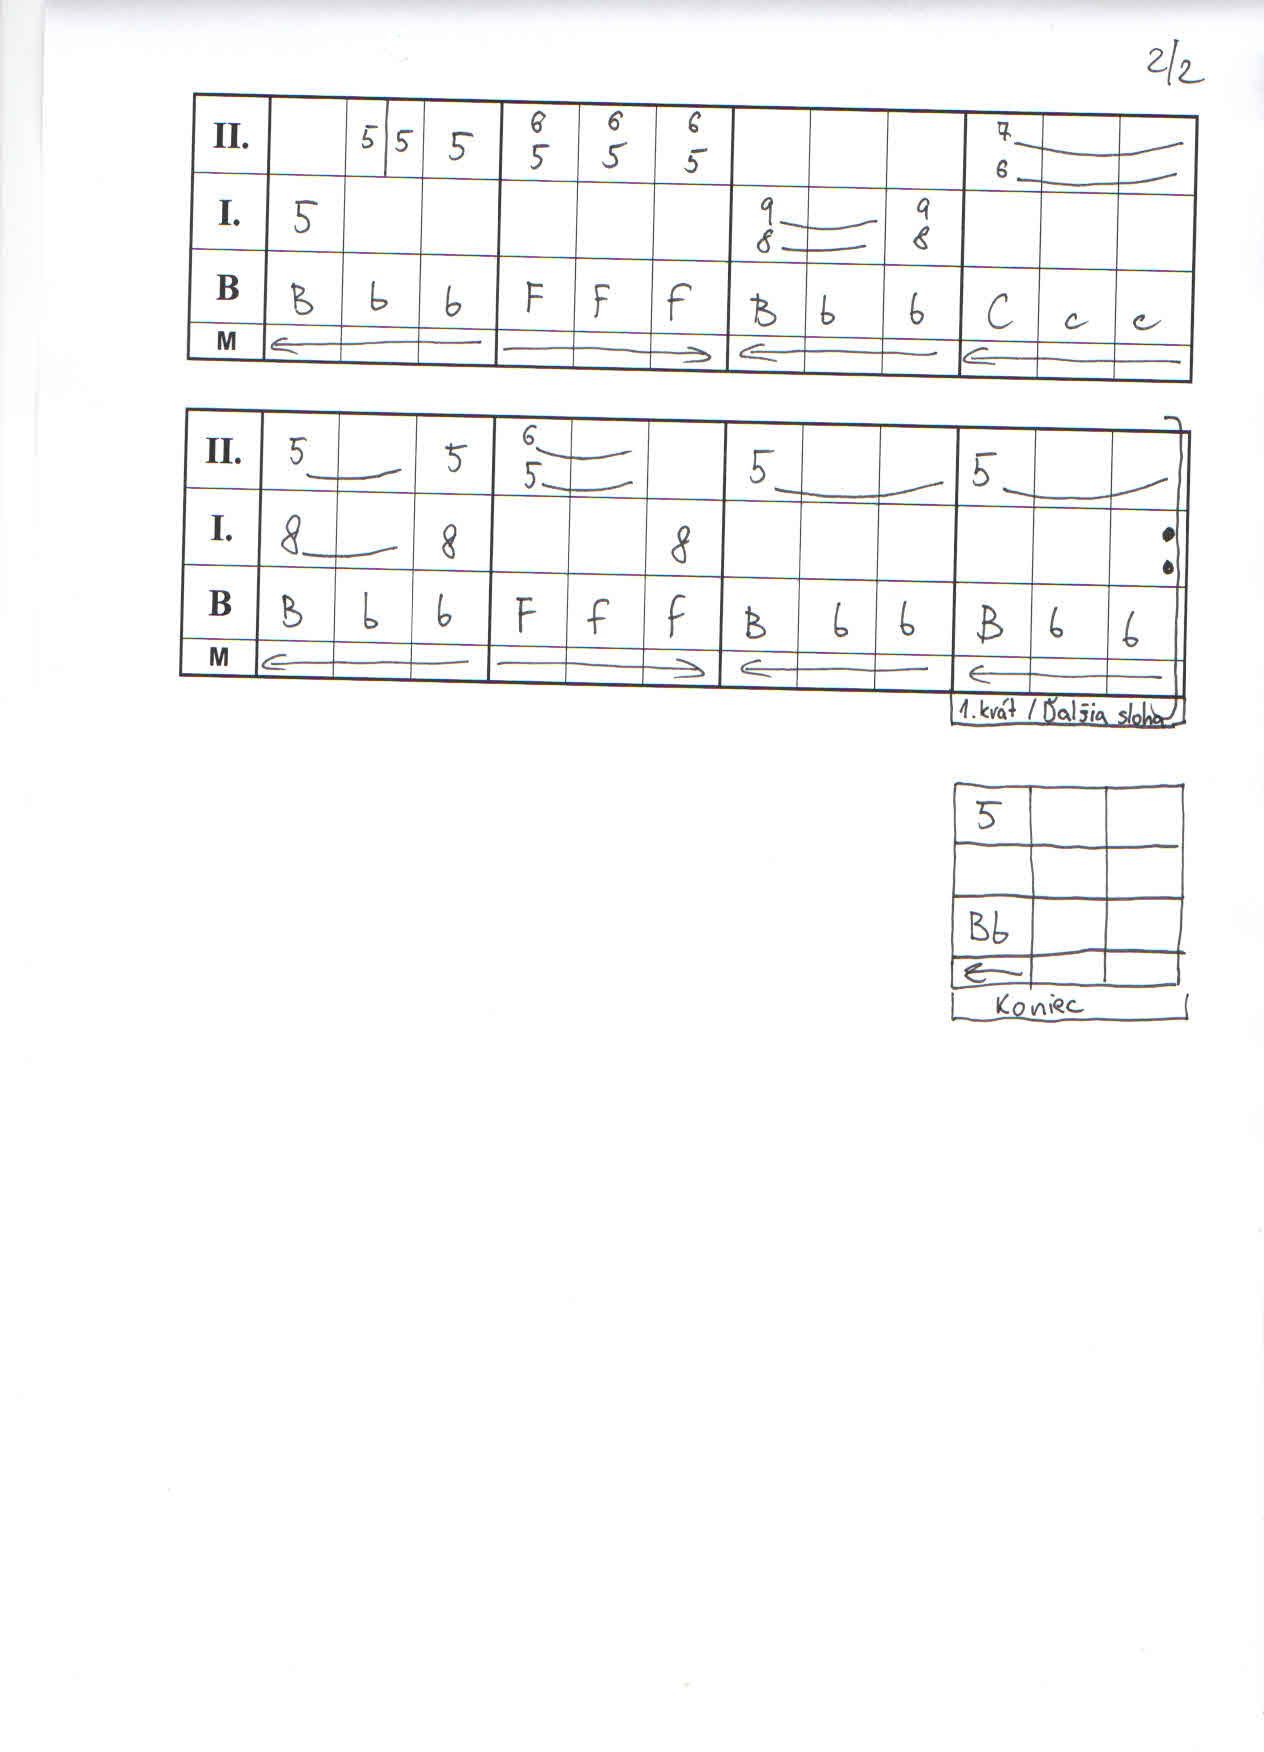 2/2
II. 5 5 5 6 6 6 7
5 5 5 6
I. 5 9 9
8 8
B B b b F F f B b b C c c
M
II. 5 5 6 5 5
5
I. 8 8 8
B B b b F f f B b b B b b
M
1. krát / Ďalšia sloha
5
Bb
Koniec